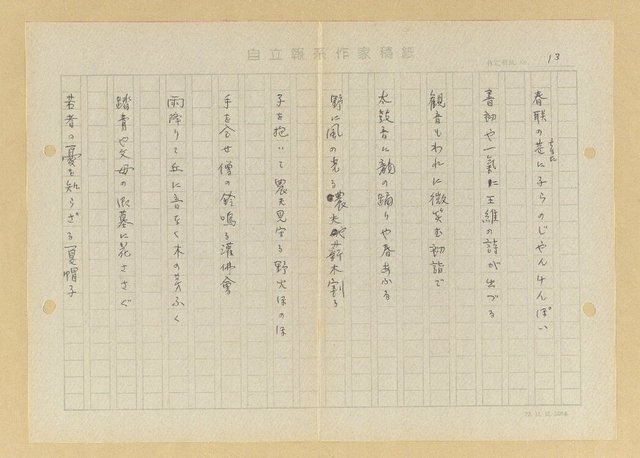 自立報系作家稿紙
13
春联の巷に子らのじゃんけんぽい
ちまた
書初や一氣に王維の詩が出づる
観音もわれに微笑む初詣で
太鼓音に龍の踊りや春あふる
野に風の光る農夫や薪木割る
子を抱いて農夫見守る野火ほのほ
手を合せ僧の鈴鳴る灌佛會
雨降りて丘に音なく木の芽ふく
踏青や父母の墓に花ささぐ
若者の憂を知らざる夏帽子